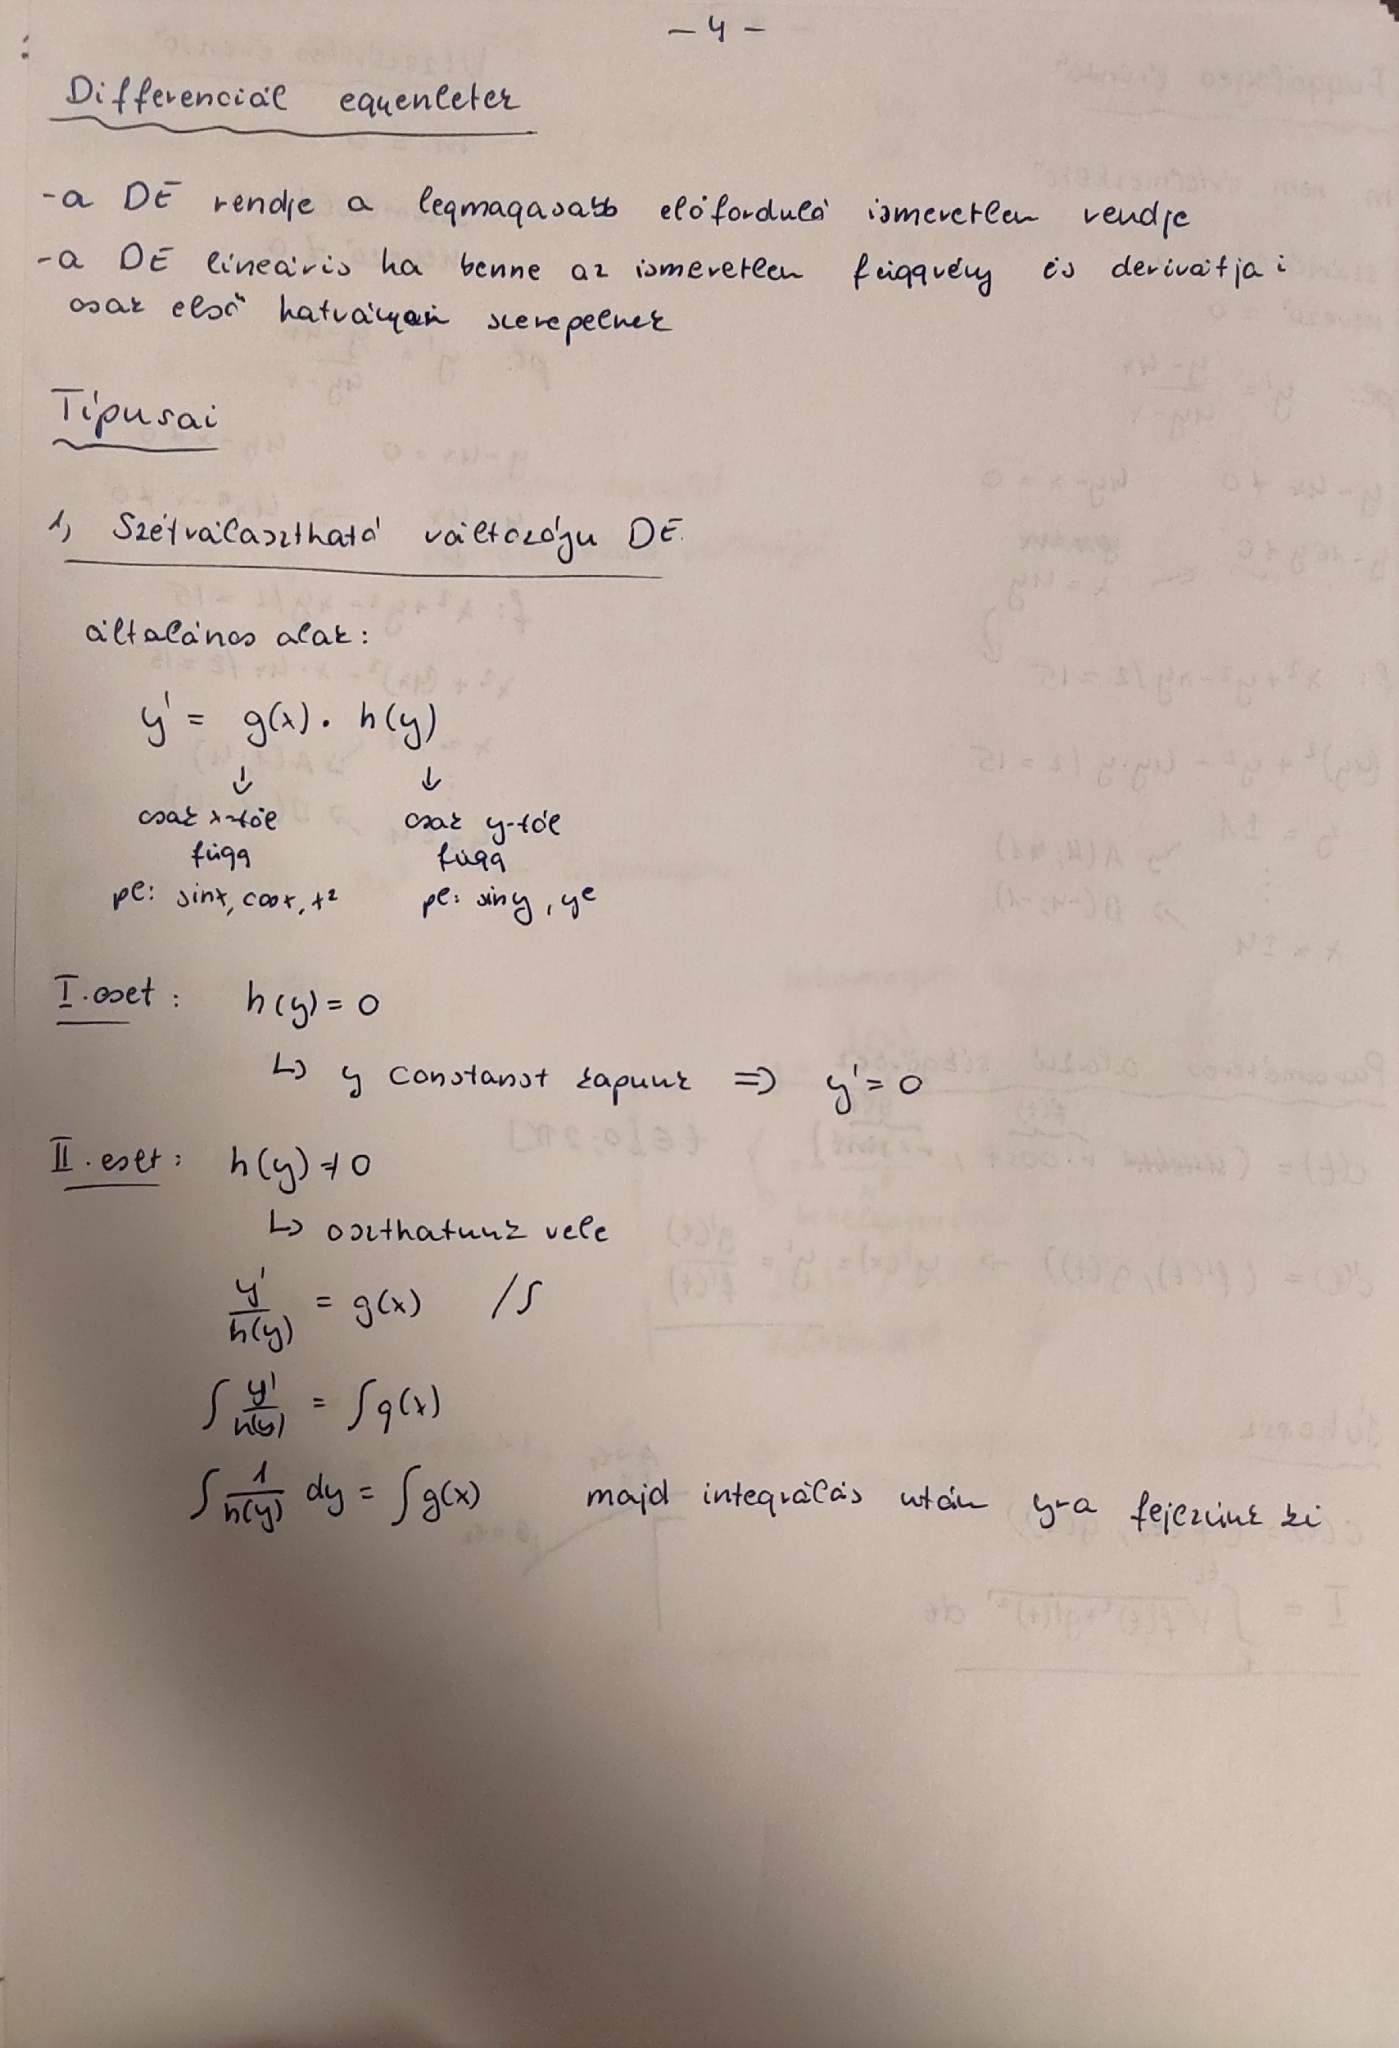 - 4 -
Differenciál egyenletek
- a DE rendje a legmagasabb előforduló ismeretlen rendje
- a DE lineáris ha benne az ismeretlen függvény és derivátjai
csak első hatványon szerepelnek
Típusai
1, Szétválasztható változóju DE.
általános alak:
y' = g(x) · h(y)
↓ ↓
csak x-től csak y-tól
függ függ
pl: sinx, cosx, x² pl: siny, y^e
I. eset: h(y) = 0
↳ y constanst kapunk ⇒ y' = 0
II. eset: h(y) ≠ 0
↳ oszthatunk vele
y'/h(y) = g(x) /∫
∫ y'/h(y) = ∫ g(x)
∫ 1/h(y) dy = ∫ g(x) majd integrálás után y-a fejezünk ki